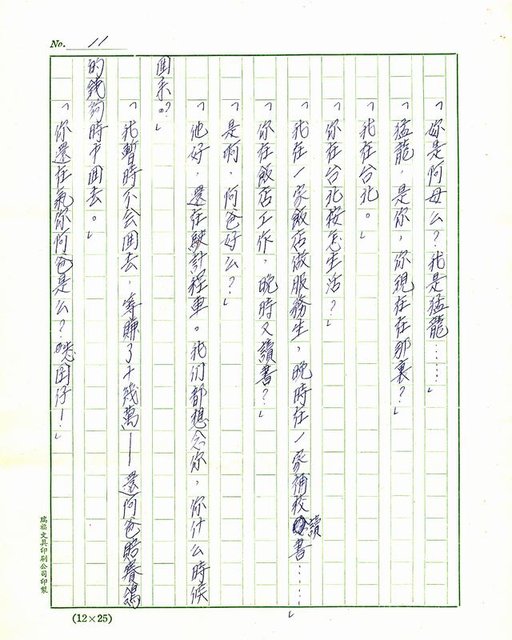 No. 11
「妳是阿母么？我是猛龍……」
「猛龍，是你，你現在在那裏？」
「我在台北。」
「你在台北按怎生活？」
「我在一家飯店做服務生，晚時在一家補校讀書……」
「你在飯店工作，晚時又讀書？」
「是啊，阿爸好么？」
「他好，還在駛計程車。我们都想念你，你什么時候
回來？」
「我暫時不会回去，等賺了十幾萬——還阿爸賠賽鴿
的錢 時才回去。」
「你還在氣你阿爸是么？ 囝仔！」
瑞 文具印刷公司印製
(12×25)